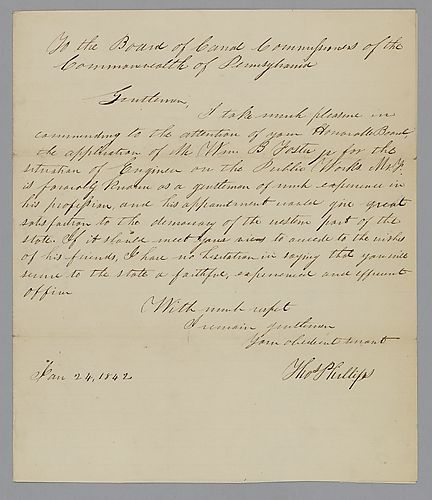 To the Board of Canal Commissioners of the
Commonwealth of Pennsylvania
Gentlemen,
I take much pleasure in
commending to the attention of your Honorable Board
the application of Mr Wm. B. Foster jr for the
situation of Engineer on the Public Works Mr. F.
is favorably known as a gentleman of much experience in
his profession, and his appointment would give great
satisfaction to the democracy of the western part of the
state. If it should meet your views to accede to the wishes
of his friends, I have no hesitation in saying that you will
secure to the state a faithful, experienced and efficient
officer
With much respect
I remain gentlemen
Your obedient servant
Jan 24, 1842
Thos Phillips